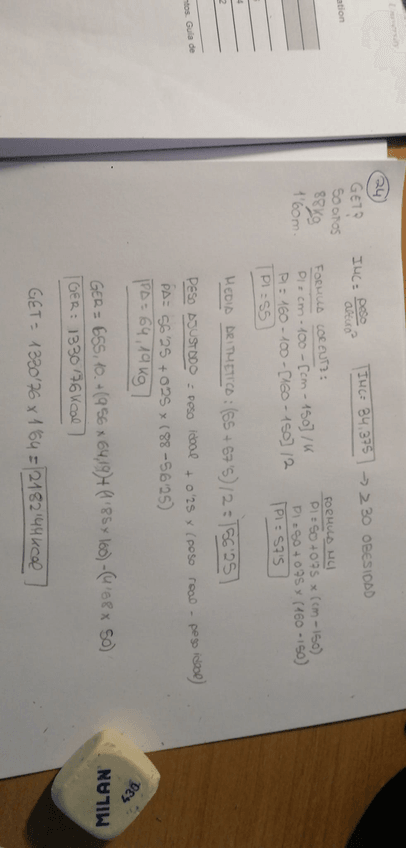 24
GET?
50 años
88Kg
1'60m.
IMC = peso
altura²
IMC = 34,375 → ≥ 30 OBESIDAD
FORMULA LORENTZ:
PI = cm - 100 - [cm - 150] / K
PI = 160 - 100 - [160 - 150] / 2
PI = 55
FORMULA NLI
PI = 50 + 0'75 x (cm - 150)
PI = 50 + 0'75 x (160 - 150)
PI = 57'5
MEDIA ARITMETICA: (55 + 57'5) / 2 = 56'25
PESO AJUSTADO = peso ideal + 0'25 x (peso real - peso ideal)
PA = 56'25 + 0'25 x (88 - 56'25)
PA = 64,19 Kg
GER = 655,10 + (9'56 x 64,19) + (1,85 x 160) - (4'68 x 50)
GER: 1330'76 Kcal
GET = 1330'76 x 1'64 = 2182'44 Kcal
MILAN
430
ation
ntos. Guía de